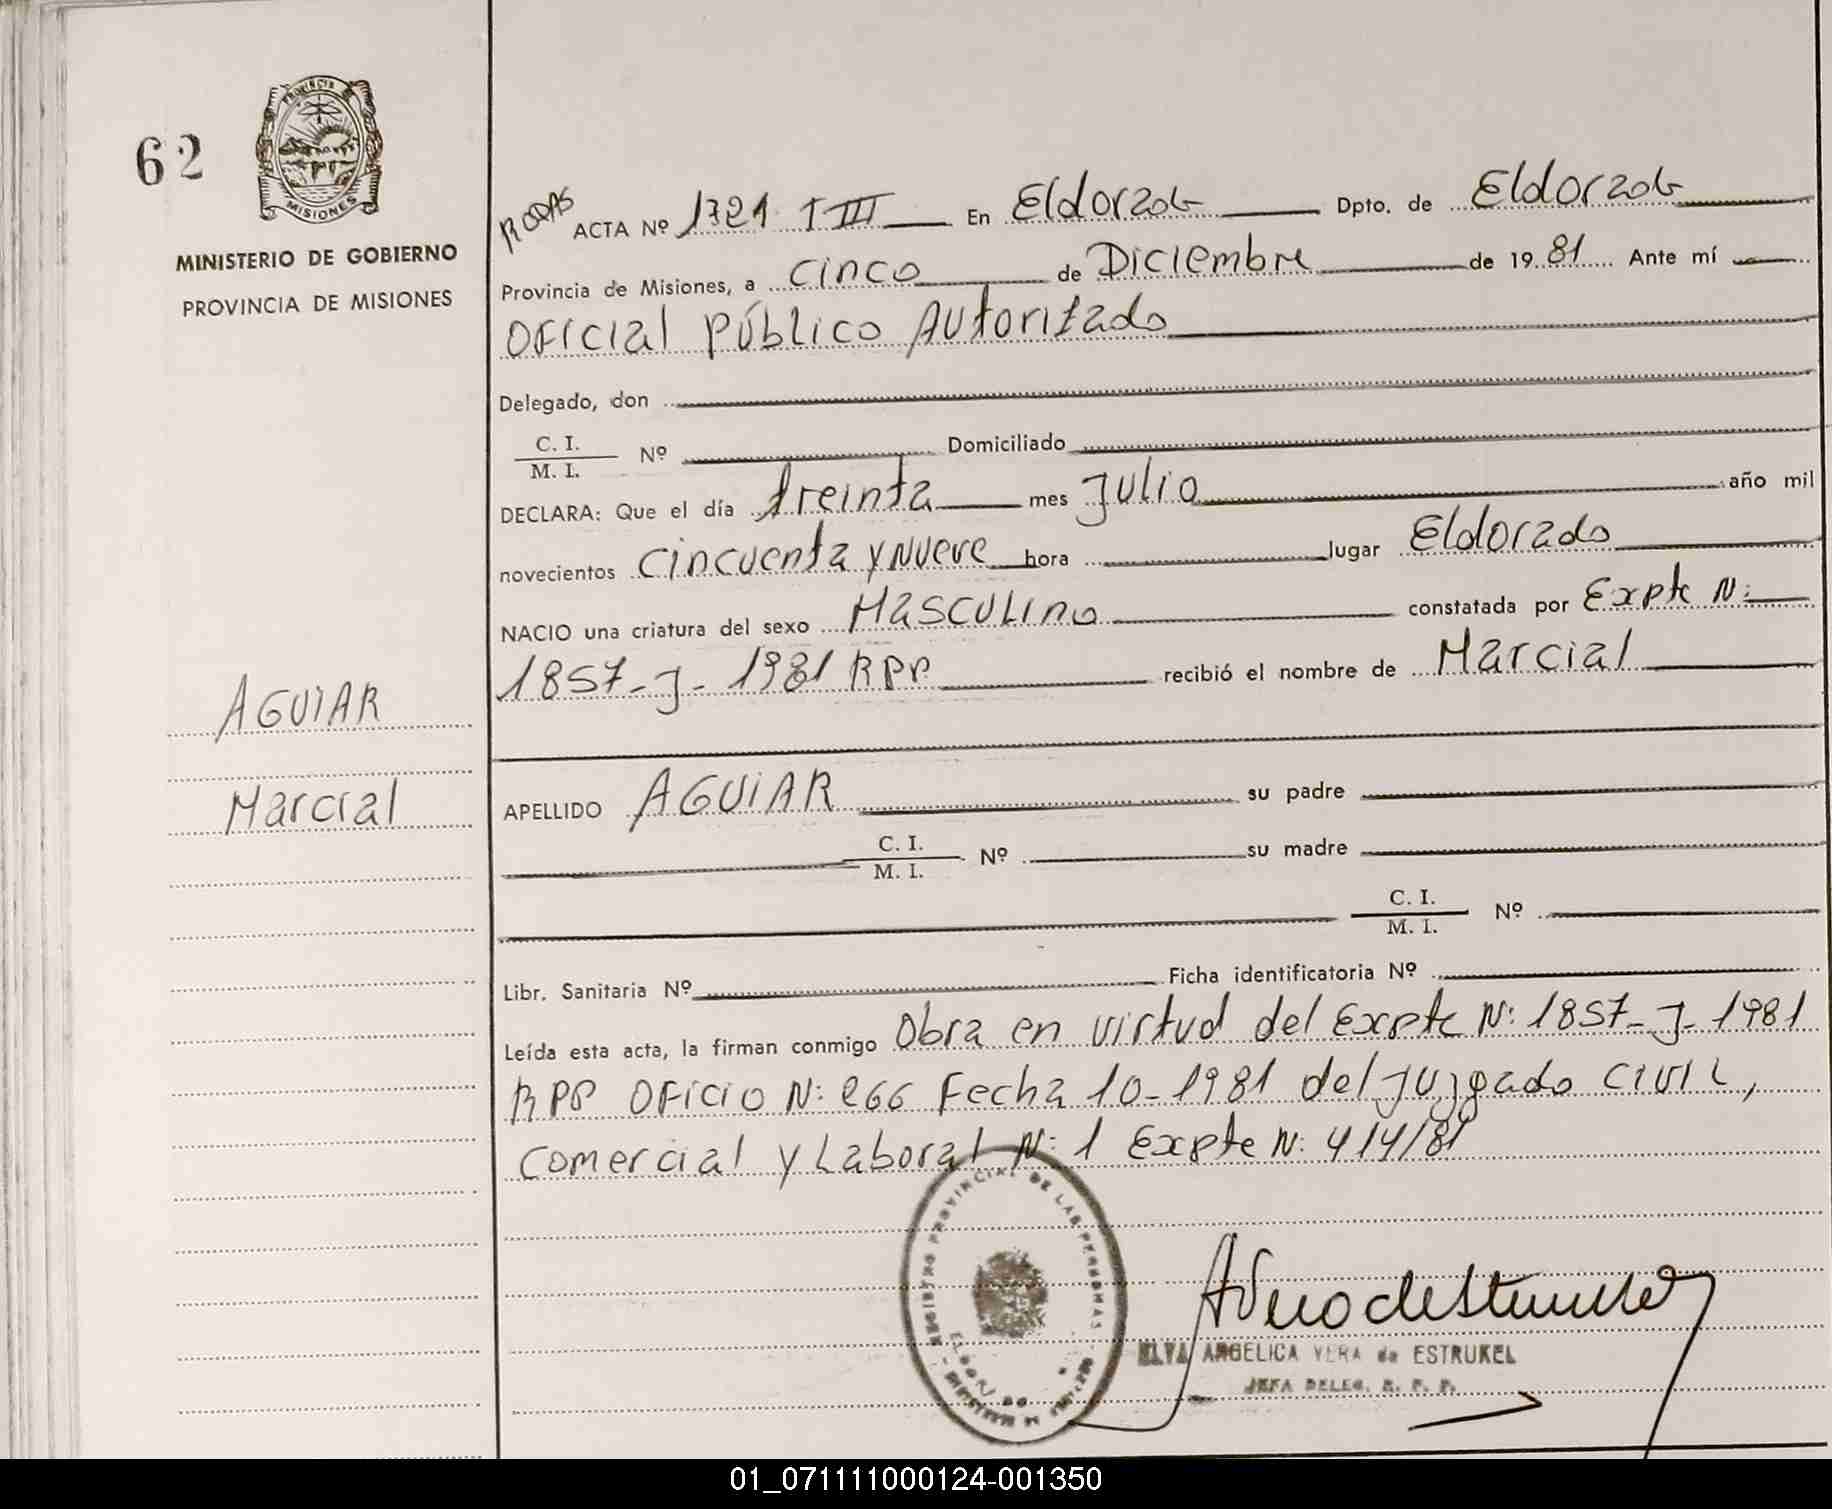 62
PROVINCIA
MISIONES
MINISTERIO DE GOBIERNO
PROVINCIA DE MISIONES
AGUIAR
Marcial
RODAS
ACTA Nº 1721 T III En Eldorado Dpto. de Eldorado
Provincia de Misiones, a cinco de Diciembre de 1981 Ante mí
Oficial Público Autorizado
Delegado, don
C. I.
M. I. Nº Domiciliado
DECLARA: Que el día treinta mes Julio año mil
novecientos cincuenta y nueve hora lugar Eldorado
NACIO una criatura del sexo Masculino constatada por Expte N:
1857-J-1981 RPP recibió el nombre de Marcial
APELLIDO AGUIAR su padre
C. I.
M. I. Nº su madre
C. I.
M. I. Nº
Libr. Sanitaria Nº Ficha identificatoria Nº
Leída esta acta, la firman conmigo Obra en virtud del Expte N: 1857-J-1981
RPP Oficio N: 266 Fecha 10-1981 del Juzgado Civil,
Comercial y Laboral N: 1 Expte N: 414/81
REGISTRO PROVINCIAL DE LAS PERSONAS
ELDORADO
ELVA ANGELICA VERA de ESTRUKEL
JEFA DELEG. R. P. P.
01_071111000124-001350